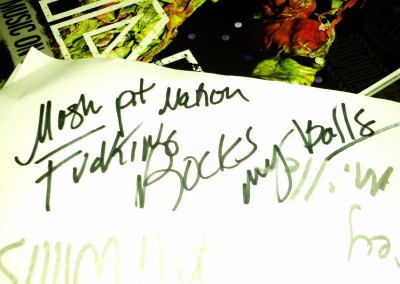 MUSIC ON
Mosh pit Nation
FUCKING
ROCKS my Balls